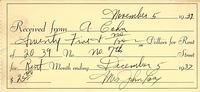 November 5 1937
Received from A. Cohn
Twenty Five & no Dollars for Rent
2039 N 7th Street
for Rent Month ending December 5 1937
$25
Mrs John